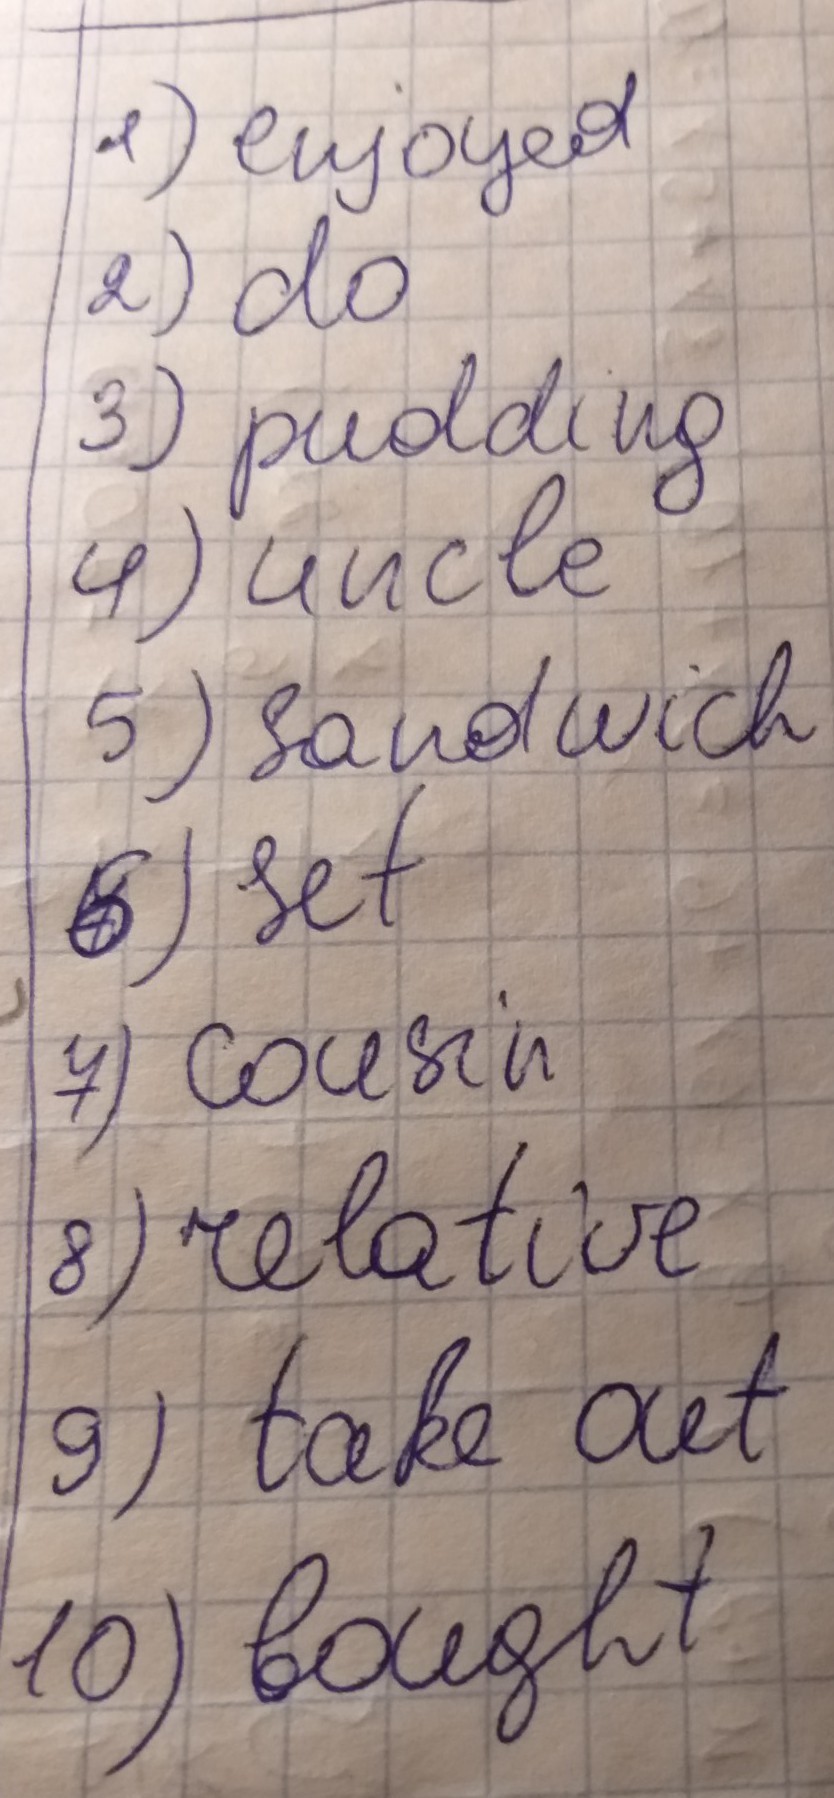 1) enjoyed
2) do
3) pudding
4) uncle
5) sandwich
6) set
7) cousin
8) relative
9) take out
10) bought